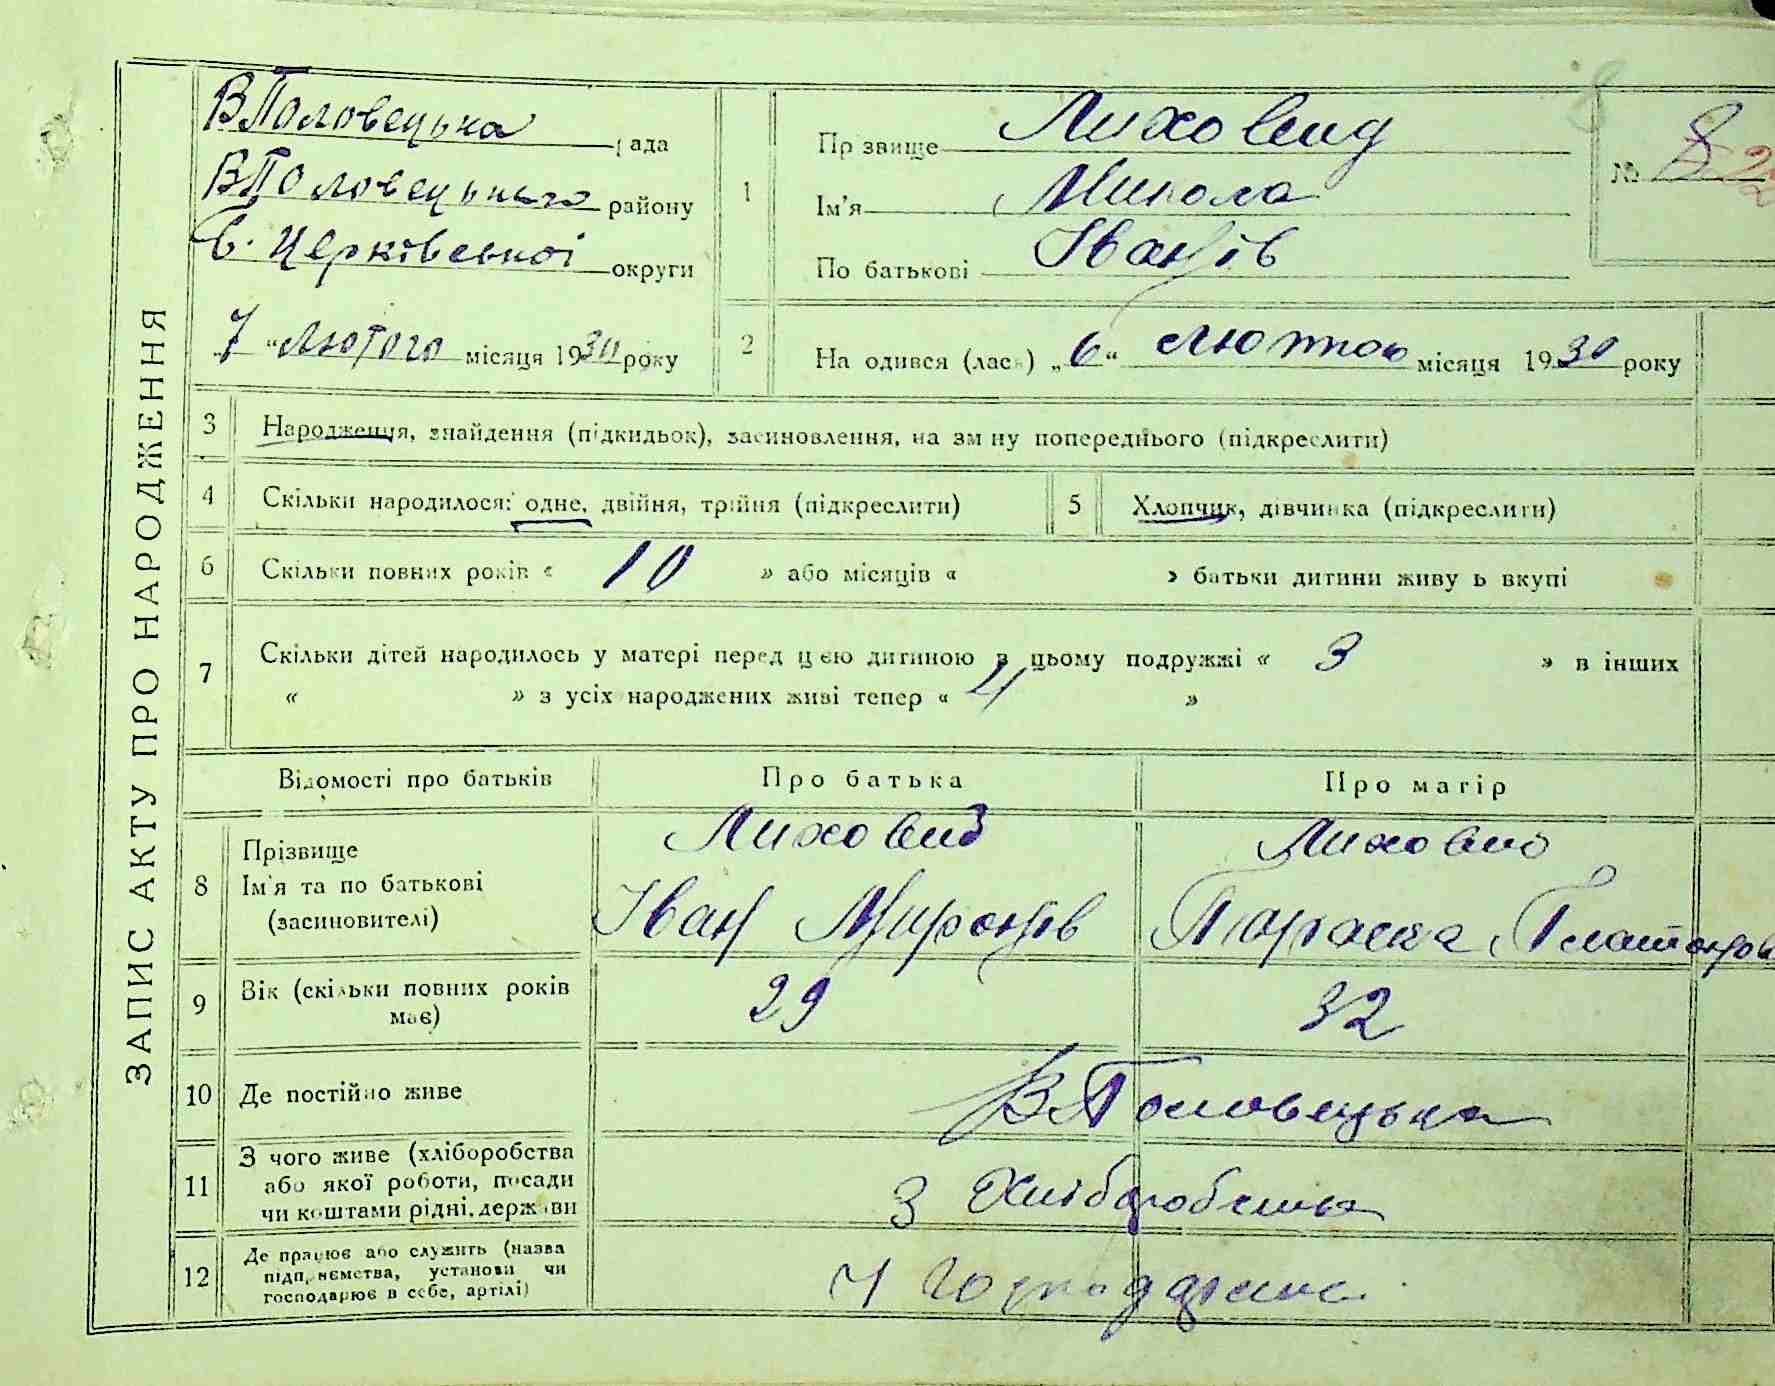 ЗАПИС АКТУ ПРО НАРОДЖЕННЯ
ВПоловецька рада
ВПоловецького району
Б. Церківської округи
7 "лютого місяця 1930 року
1
Прізвище Лиховид
Ім'я Микола
По батькові Іванів
№ 8
2
На одився (лась) „6“ лютого місяця 1930 року
3 Народження, знайдення (підкидьок), засиновлення, на зміну попереднього (підкреслити)
4 Скільки народилося: одне, двійня, трійня (підкреслити)
5 Хлопчик, дівчинка (підкреслити)
6 Скільки повних років « 10 » або місяців « » батьки дитини живуть вкупі
7 Скільки дітей народилось у матері перед цією дитиною в цьому подружжі « 3 » в інших
« » з усіх народжених живі тепер « 4 »
Відомості про батьків Про батька Про матір
8 Прізвище Лиховид Лиховид
Ім'я та по батькові Іван Миронів Параска Платонов
(засиновителі)
9 Вік (скільки повних років має) 29 32
10 Де постійно живе ВПоловецька
11 З чого живе (хліборобства
або якої роботи, посади
чи коштами рідні, держави
З Хліборобства
12 Де працює або служить (назва
підприємства, установи чи
господарює в себе, артілі)